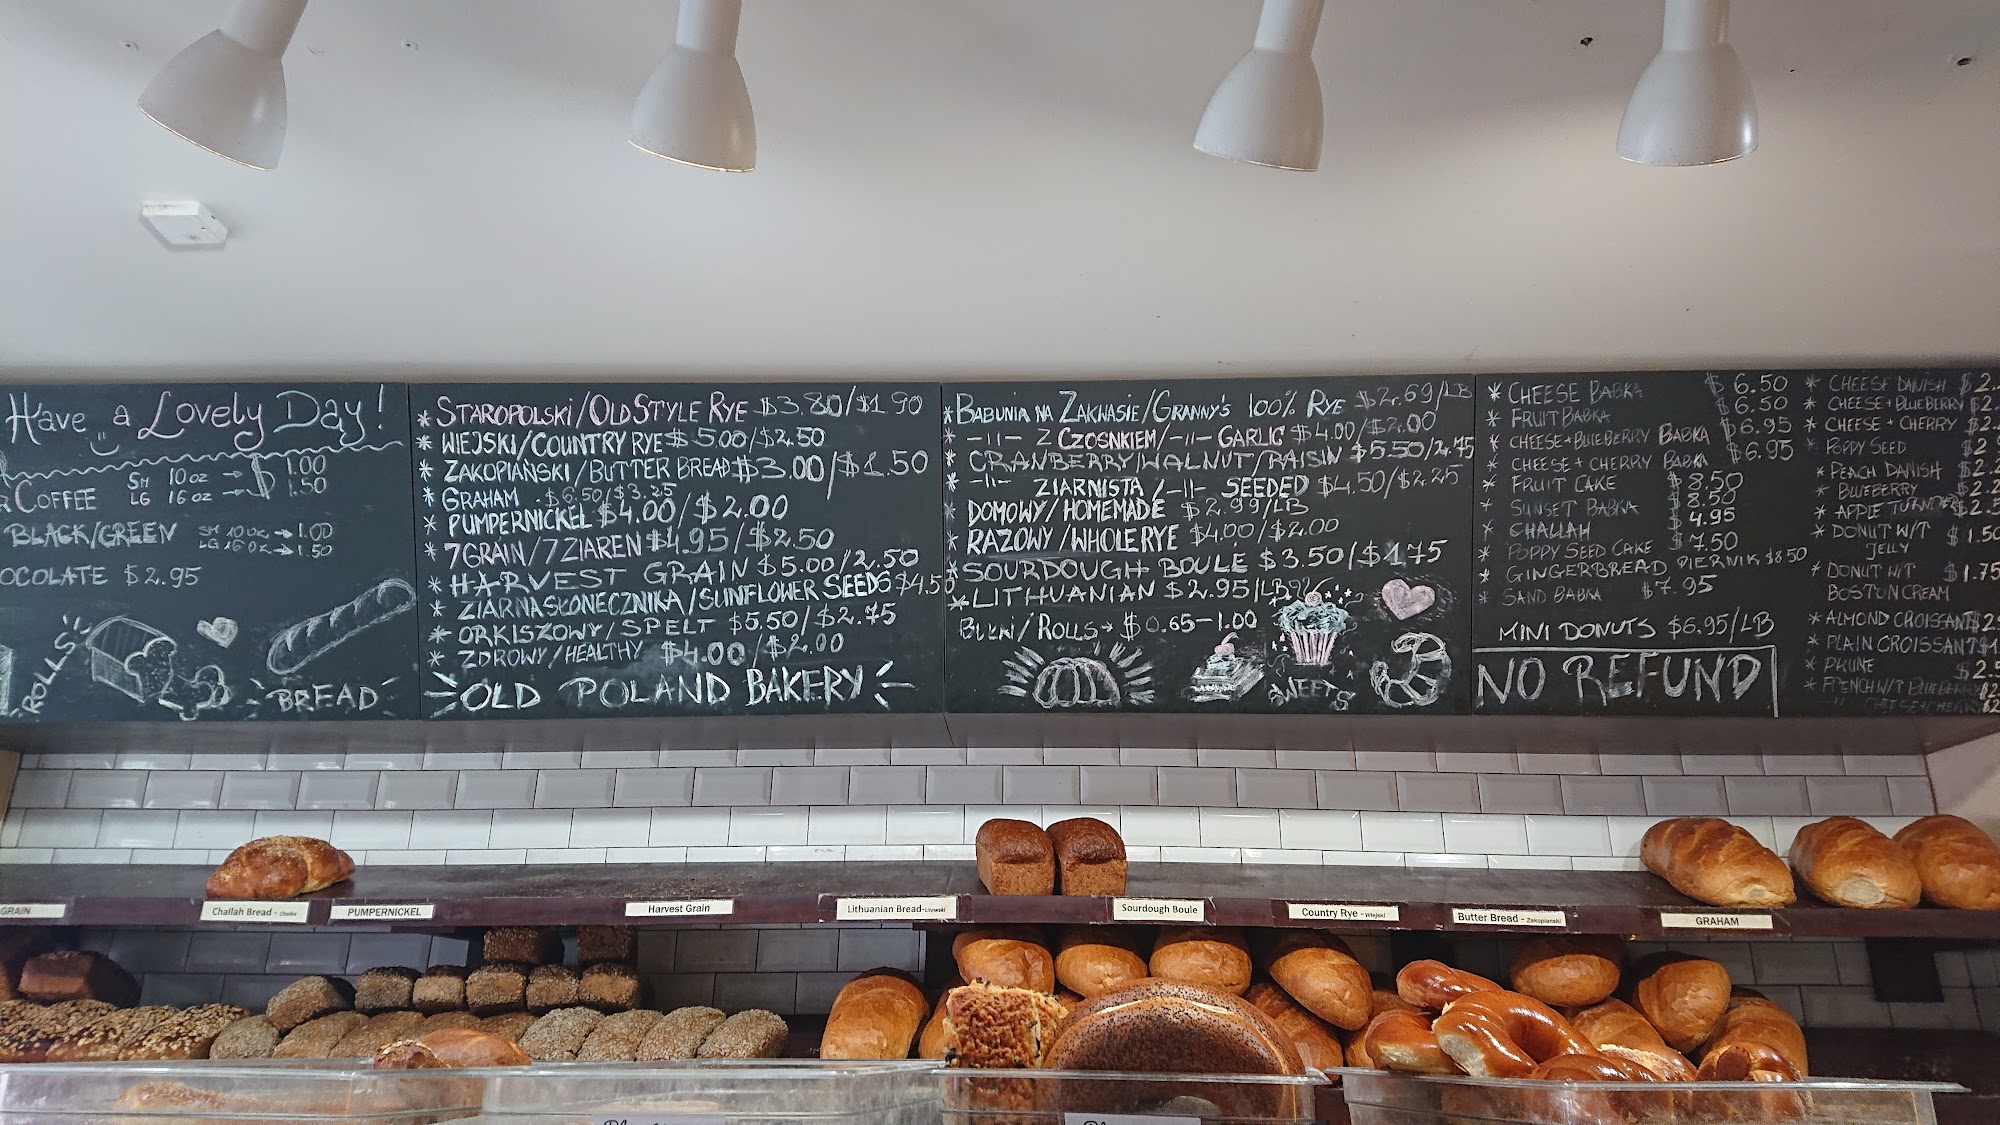 Have a Lovely Day!
COFFEE SM 10 oz → $ 1.00
LG 16 oz → 1.50
BLACK/GREEN SM 10 oz → 1.00
LG 16 oz → 1.50
OCOLATE $2.95
ROLLS
BREAD
* STAROPOLSKI/OLD STYLE RYE $3.80/$1.90
* WIEJSKI/COUNTRY RYE $5.00/$2.50
* ZAKOPIAŃSKI/BUTTER BREAD $3.00/$1.50
* GRAHAM $6.50/$3.25
* PUMPERNICKEL $4.00/$2.00
* 7 GRAIN/7 ZIAREN $4.95/$2.50
* HARVEST GRAIN $5.00/2.50
* ZIARNA SŁONECZNIKA/SUNFLOWER SEEDS $4.50
* ORKISZOWY/SPELT $5.50/$2.75
* ZDROWY/HEALTHY $4.00/$2.00
OLD POLAND BAKERY
* BABUNIA NA ZAKWASIE/GRANNY'S 100% RYE $2.69/LB
* -11- Z CZOSNKIEM/-11- GARLIC $4.00/$2.00
* CRANBERRY/WALNUT/RAISIN $5.50/2.75
* -11- ZIARNISTA/-11- SEEDED $4.50/$2.25
* DOMOWY/HOMEMADE $2.99/LB
* RAZOWY/WHOLE RYE $4.00/$2.00
* SOURDOUGH BOULE $3.50/$1.75
* LITHUANIAN $2.95/LB
BUŁKI/ROLLS → $0.65-1.00
SWEETS
* CHEESE BABKA $6.50
* FRUIT BABKA $6.50
* CHEESE+BLUEBERRY BABKA $6.95
* CHEESE+CHERRY BABKA $6.95
* FRUIT CAKE $8.50
* SUNSET BABKA $8.50
* CHALLAH $4.95
* POPPY SEED CAKE $7.50
* GINGERBREAD PIERNIK $8.50
* SAND BABKA $7.95
MINI DONUTS $6.95/LB
NO REFUND
* CHEESE DANISH $2.
* CHEESE+BLUEBERRY $2.
* CHEESE+CHERRY $2.
* POPPY SEED $2
* PEACH DANISH $2.
* BLUEBERRY $2.
* APPLE TURNOVER $2.
* DONUT W/T JELLY $1.50
* DONUT W/T BOSTON CREAM $1.75
* ALMOND CROISSANT $2
* PLAIN CROISSANT $1
* PRUNE $2.5
* FRENCH W/T BLUEBERRY $2
-11- CHEESE+CHERRY $2
GRAIN
Challah Bread - Chałka
PUMPERNICKEL
Harvest Grain
Lithuanian Bread-Litewski
Sourdough Boule
Country Rye -Wiejski
Butter Bread - Zakopianski
GRAHAM